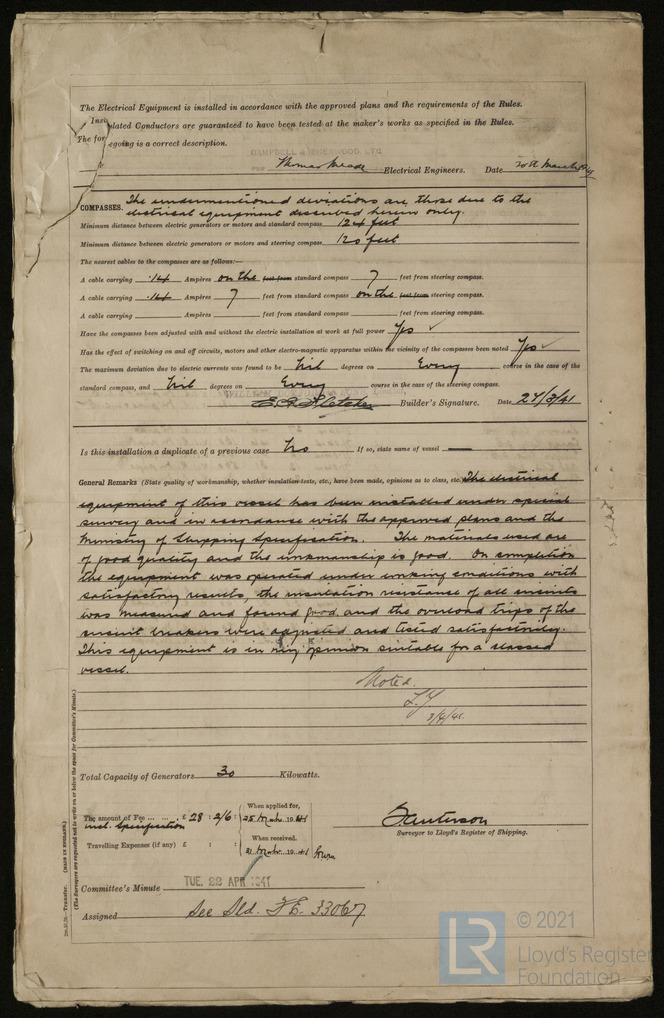 The Electrical Equipment is installed in accordance with the approved plans and the requirements of the Rules.
Insulated Conductors are guaranteed to have been tested at the maker's works as specified in the Rules.
The foregoing is a correct description.
CAMPBELL & ISHERWOOD, LTD.
Thomas Meade Electrical Engineers. Date 20th March 1941
COMPASSES. The undermentioned deviations are those due to the
electrical equipment described herein only.
Minimum distance between electric generators or motors and standard compass 124 feet
Minimum distance between electric generators or motors and steering compass 120 feet
The nearest cables to the compasses are as follows:—
A cable carrying .14 Ampères on the feet from standard compass 7 feet from steering compass.
A cable carrying .14 Ampères 7 feet from standard compass on the feet from steering compass.
A cable carrying Ampères feet from standard compass feet from steering compass.
Have the compasses been adjusted with and without the electric installation at work at full power Yes ✓
Has the effect of switching on and off circuits, motors and other electro-magnetic apparatus within the vicinity of the compasses been noted Yes ✓
The maximum deviation due to electric currents was found to be Nil degrees on Every course in the case of the
standard compass, and Nil degrees on Every course in the case of the steering compass.
Builder's Signature. Date 27/3/41
Is this installation a duplicate of a previous case No If so, state name of vessel
General Remarks (State quality of workmanship, whether insulation tests, etc., have been made, opinions as to class, etc. The electrical
equipment of this vessel has been installed under special
survey and in accordance with the approved plans and the
Ministry of Shipping Specification. The materials used are
of good quality and the workmanship is good. On completion
the equipment was operated under working conditions with
satisfactory results, the insulation resistance of all circuits
was measured and found good and the overload trips of the
circuit breakers were adjusted and tested satisfactorily.
This equipment is in my opinion suitable for a classed
vessel.
Noted.
Total Capacity of Generators 30 Kilowatts.
The amount of Fee ... ... £ 28 : 2/6 :
incl. Specification
When applied for,
25 Mch. 1941
When received.
Travelling Expenses (if any) £ : :
Surveyor to Lloyd's Register of Shipping.
Committee's Minute TUE. 22 APR 1941
Assigned See Sld. F.E. 33067
(The Surveyors are requested not to write on or below the space for Committee's Minute.)
Transfer. (MADE IN ENGLAND.)
LR
© 2021
Lloyd's Register
Foundation